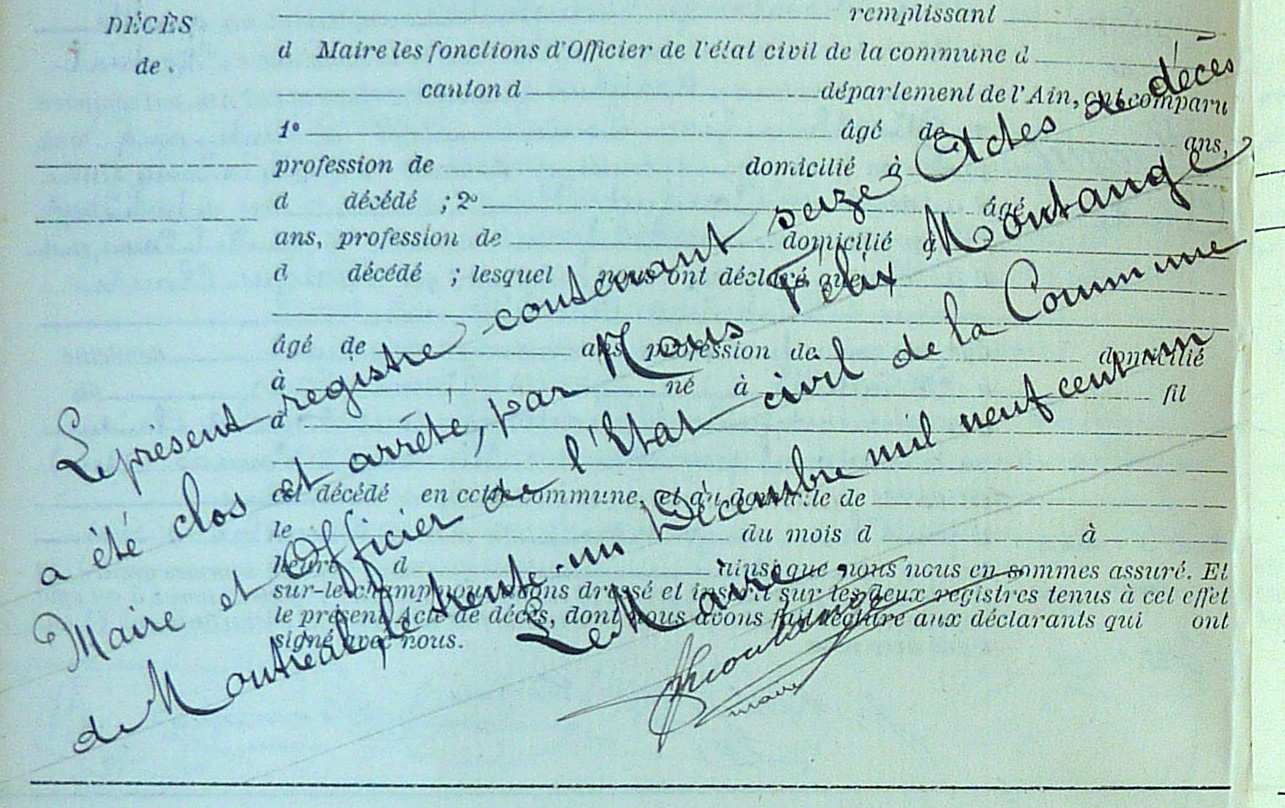 DÉCÈS
de
remplissant
d Maire les fonctions d'Officier de l'état civil de la commune d
canton d département de l'Ain, ont comparu
1° âgé de ans,
profession de domicilié à
d décédé ; 2° âgé
ans, profession de domicilié à
d décédé ; lesquel nous ont déclaré que
âgé de ans, profession de domicilié
à né à fil
d
est décédé en cette commune, et au domicile de
le du mois d à
heure d ainsi que nous nous en sommes assuré. Et
sur-le-champ nous avons dressé et inscrit sur les deux registres tenus à cet effet
le présent Acte de décès, dont nous avons fait lecture aux déclarants qui ont
signé avec nous.
Le présent registre contenant seize Actes de décès
a été clos et arrêté, par Nous Félix Montange
Maire et Officier de l'Etat civil de la Commune
de Montréal, le trente-un Décembre mil neuf cent un
Le Maire
Montange
maire